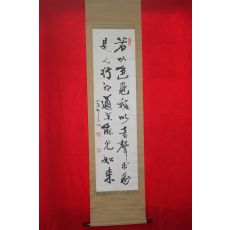 若以色見我以音聲求我
是人行邪道不能見如來